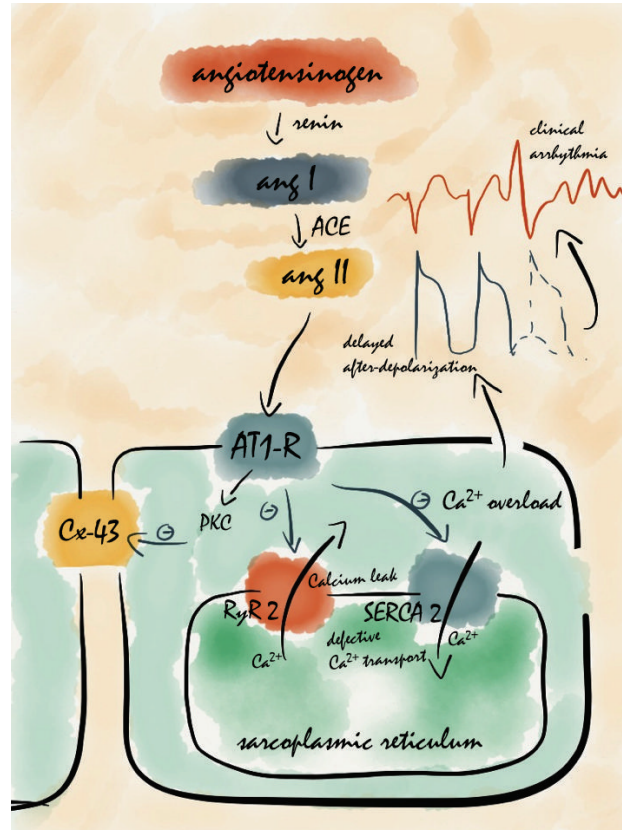 angiotensinogen
renin
ang I
ACE
ang II
clinical
arrhythmia
delayed
after-depolarization
AT1-R
Cx-43
⊖
PKC
⊖
⊖
Ca²⁺ overload
RyR 2
Calcium leak
SERCA 2
Ca²⁺
defective
Ca²⁺ transport
Ca²⁺
sarcoplasmic reticulum